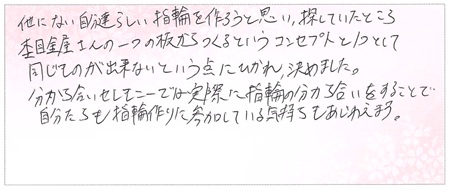 他にない自分達らしい指輪を作ろうと思い、探していたところ
杢目金屋さんの一つの板からつくるというコンセプトと1つとして
同じものが出来ないという点にひかれ、決めました。
分かち合いセレモニーでは実際に指輪の分かち合いをすることで
自分たちも指輪作りに参加している気持ちもあじわえます。